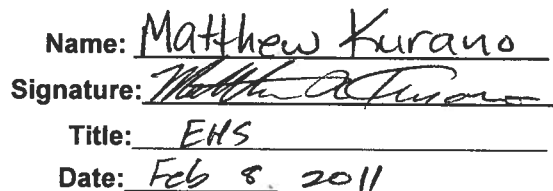 Name: Matthew Kurano
Signature: Matthew A Kurano
Title: EHS
Date: Feb 8. 2011